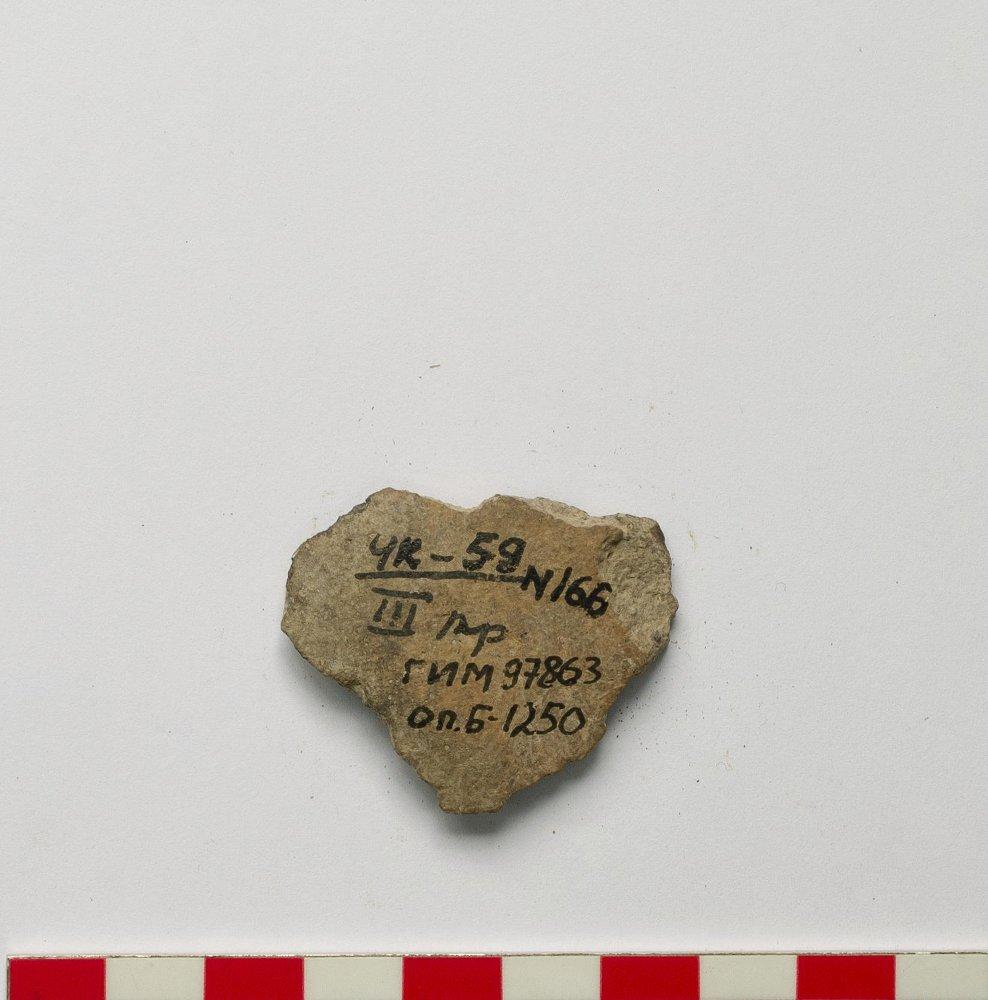 ЧК-59 N166
III тр.
ГИМ 97863
оп.Б-1250